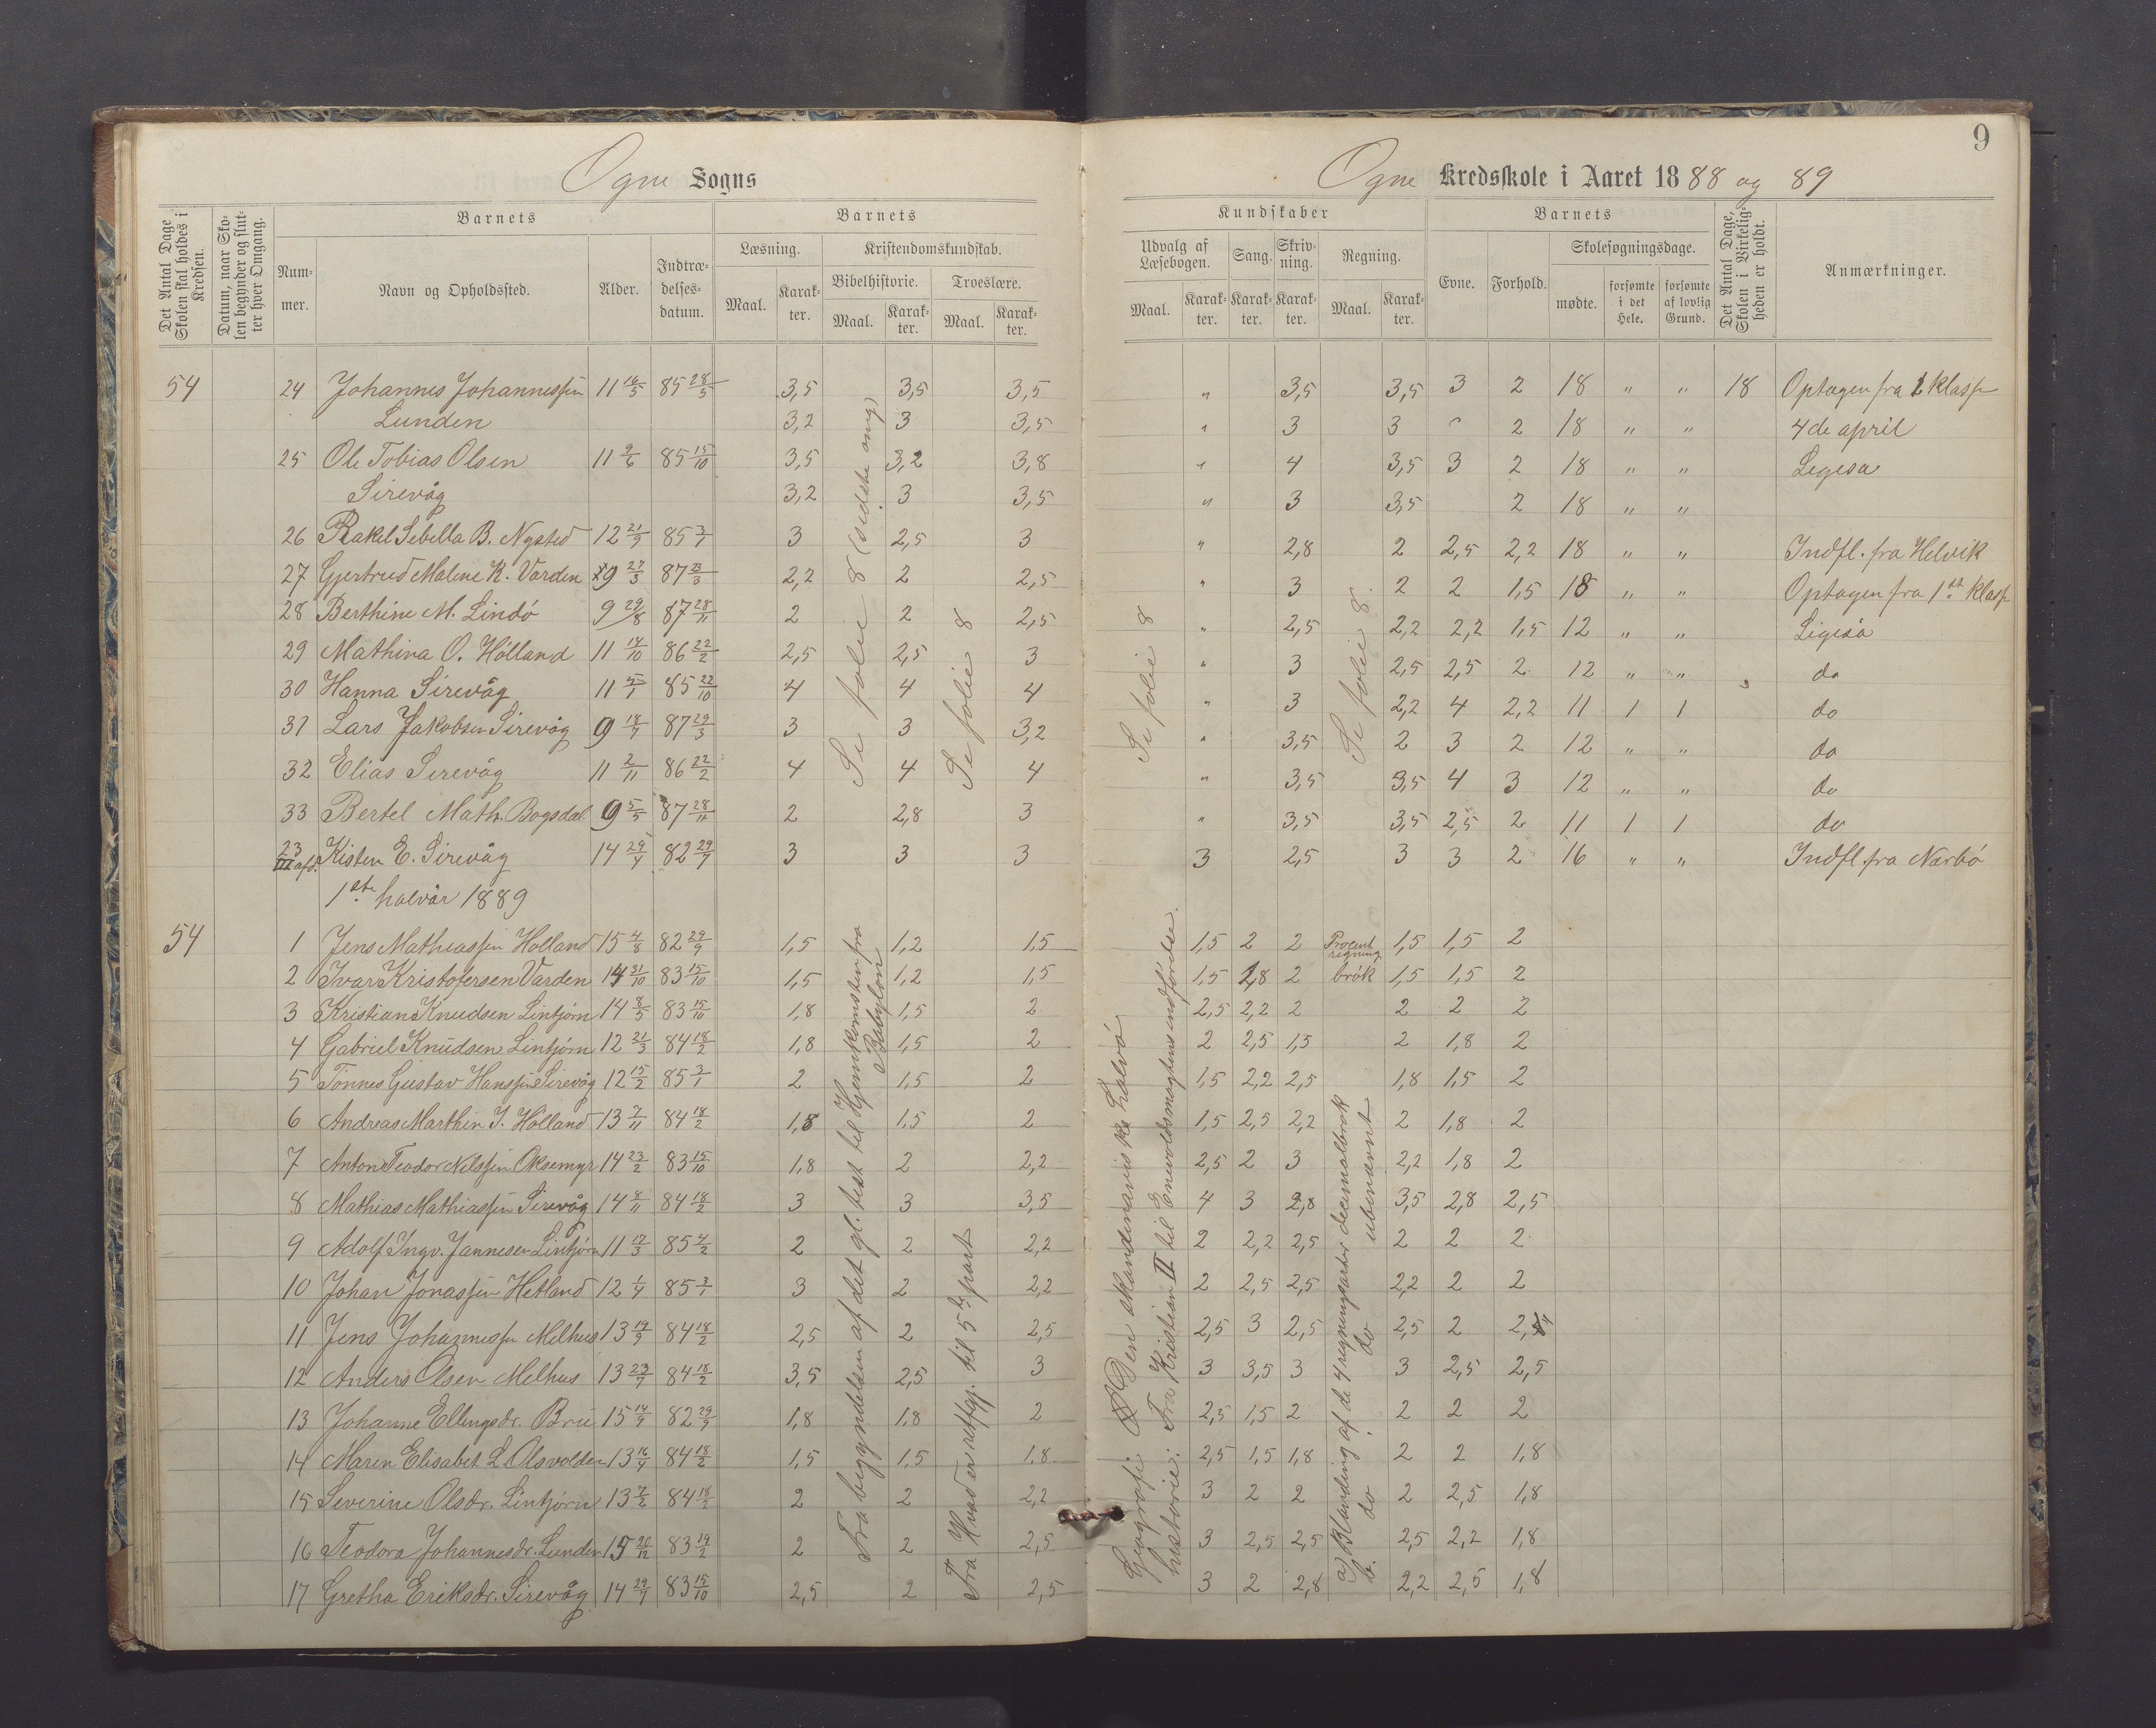 9
Ogne Sogns
Ogne Kredsskole i Aaret 1888 og 89
Det Antal Dage Skolen skal holdes i Kredsen.
Datum, naar Skolen begynder og slutter hver Omgang.
Barnets
Nummer.
Navn og Opholdssted.
Alder.
Indtrædelsesdatum.
Barnets
Læsning.
Maal.
Karakter.
Kristendomskundskab.
Bibelhistorie.
Maal.
Karakter.
Troeslære.
Maal.
Karakter.
Kundskaber
Udvalg af Læsebogen.
Maal.
Karakter.
Sang.
Karakter.
Skrivning.
Karakter.
Regning.
Maal.
Karakter.
Barnets
Evne.
Forhold.
Skolesøgningsdage.
mødte.
forsømte i det Hele.
forsømte af lovlig Grund.
Det Antal Dage, Skolen i Virkeligheden er holdt.
Anmærkninger.
54 24 Johannes Johannessen 11 16/5 85 28/5 3,5 3,5 3,5 " 3,5 3,5 3 2 18 " " 18 Optagen fra 1 klasse
Lunden 3,2 3 3,5 " 3 3 " 2 18 " " 4de april
25 Ole Tobias Olsen 11 9/6 85 15/10 3,5 3,2 3,8 " 4 3,5 3 2 18 " " Ligesa
Sirevåg 3,2 3 3,5 " 3 3,5 2 18 " "
26 Rakel Sebella B. Nysted 12 21/9 85 3/1 3 2,5 3 " 2,8 2 2,5 2,2 18 " " Indfl. fra Helvik
27 Gjertrud Malene K. Varden 9 27/3 87 23/3 2,2 2 2,5 " 3 2 2 1,5 18 " " Optagen fra 1ste klasse
28 Berthine M. Lindö 9 29/8 87 28/11 2 2 2,5 " 2,5 2,2 2,2 1,5 12 " " Ligeså
29 Mathina O. Hölland 11 14/10 86 22/2 2,5 2,5 3 " 3 2,5 2,5 2 12 " " do
30 Hanna Sirevåg 11 5/1 85 22/10 4 4 4 " 3 2,2 4 2,2 11 1 1 do
31 Lars Jakobsen Sirevåg 9 18/7 87 29/3 3 3 3,2 " 3,5 2 3 2 12 " " do
32 Elias Sirevåg 11 2/11 86 22/2 4 4 4 " 3,5 3,5 4 3 12 " " do
33 Bertel Math. Bogsdal. 9 5/5 87 28/11 2 2,8 3 " 3,5 3,5 2,5 2 11 1 1 do
23 III afd. Kisten E. Sirevåg 14 29/4 82 29/7 3 3 3 3 2,5 3 3 2 16 " " Indfl. fra Narbö
Se folie 8 (sidste omg)
Se folie 8
Se folie 8
Se folie 8.
1ste halvår 1889
54 1 Jens Mathiassen Hölland 15 4/8 82 29/9 1,5 1,2 1,5 1,5 2 2 Procent regning 1,5 1,5 2
2 Ivar Kristofersen Varden 14 31/10 83 15/10 1,5 1,2 1,5 1,5 1,8 2 brök 1,5 1,5 2
3 Kristian Knudsen Lintjörn 14 8/5 83 15/10 1,8 1,5 2 2,5 2,2 2 2 2 2
4 Gabriel Knudsen Lintjörn 12 21/3 84 18/2 1,8 1,5 2 2 2,5 1,5 2 1,8 2
5 Tönnes Gustav Hanssen Sirevåg 12 15/2 85 3/1 2 1,5 2 1,5 2,2 2,5 1,8 1,5 2
6 Andreas Marthin J. Hölland 13 7/11 84 18/2 1,8 1,5 2 1,5 2,5 2,2 2 1,8 2
7 Anton Teodor Nilssen Oksemyr 14 23/2 83 15/10 1,8 2 2,2 2,5 2 3 2,2 1,8 2
8 Mathias Mathiassen Sirevåg 14 8/11 84 18/2 3 3 3,5 4 3 2,8 3,5 2,8 2,5
9 Adolf Ingv. Jannesen Lintjörn 11 17/3 85 4/2 2 2 2,2 2 2,2 2,5 2 2 2
10 Johan Jonassen Hetland 12 1/4 85 3/1 3 2 2,2 2 2,5 2,5 2,2 2 2
11 Jens Johannessen Melhus 13 19/9 84 18/2 2,5 2 2,5 2,5 3 2,5 2,5 2 2,4
12 Anders Olsen Melhus 13 23/7 84 18/2 3,5 2,5 3 3 3,5 3 3 2,5 2,5
13 Johanne Ellingsdr. Bru 15 14/9 82 29/9 1,8 1,8 2 2,5 1,5 2 2 2 2
14 Maren Elisabet L. Olsvolden 13 16/4 84 18/2 1,5 1,5 1,8 2,5 1,5 1,8 2 2 1,8
15 Severine Olsdr. Lintjörn 13 7/2 84 18/2 2 2 2,2 3 2 2 2 2,5 1,8
16 Teodora Johannesdr. Lunden 15 20/12 83 19/2 2 2 2,5 3 2,5 2,5 2,5 2,2 1,8
17 Gretha Eriksdr. Sirevåg 14 29/7 83 15/10 2,5 2 2,5 3 2 2,8 2,2 2,5 1,8
Fra begyndelsen af det gl. test til Hjemkomsten fra Babylon
Fra Hvad er retfgj. til 5te part
Geografi: Den skandinaviske halvö
historie: Fra Kristian II til Enevoldsmagtens indförelse.
a) Blanding af de 4 regningsarter decimalbrök
b. do do ubenævnt